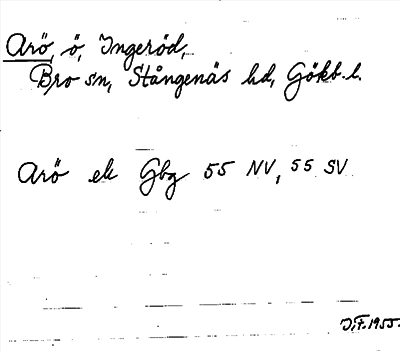 Arö, ö, Ingeröd,
Bro sn, Stångenäs hd, Gökb. l.
Arö ek Gbg 55 NV, 55 SV
J.F. 1955.